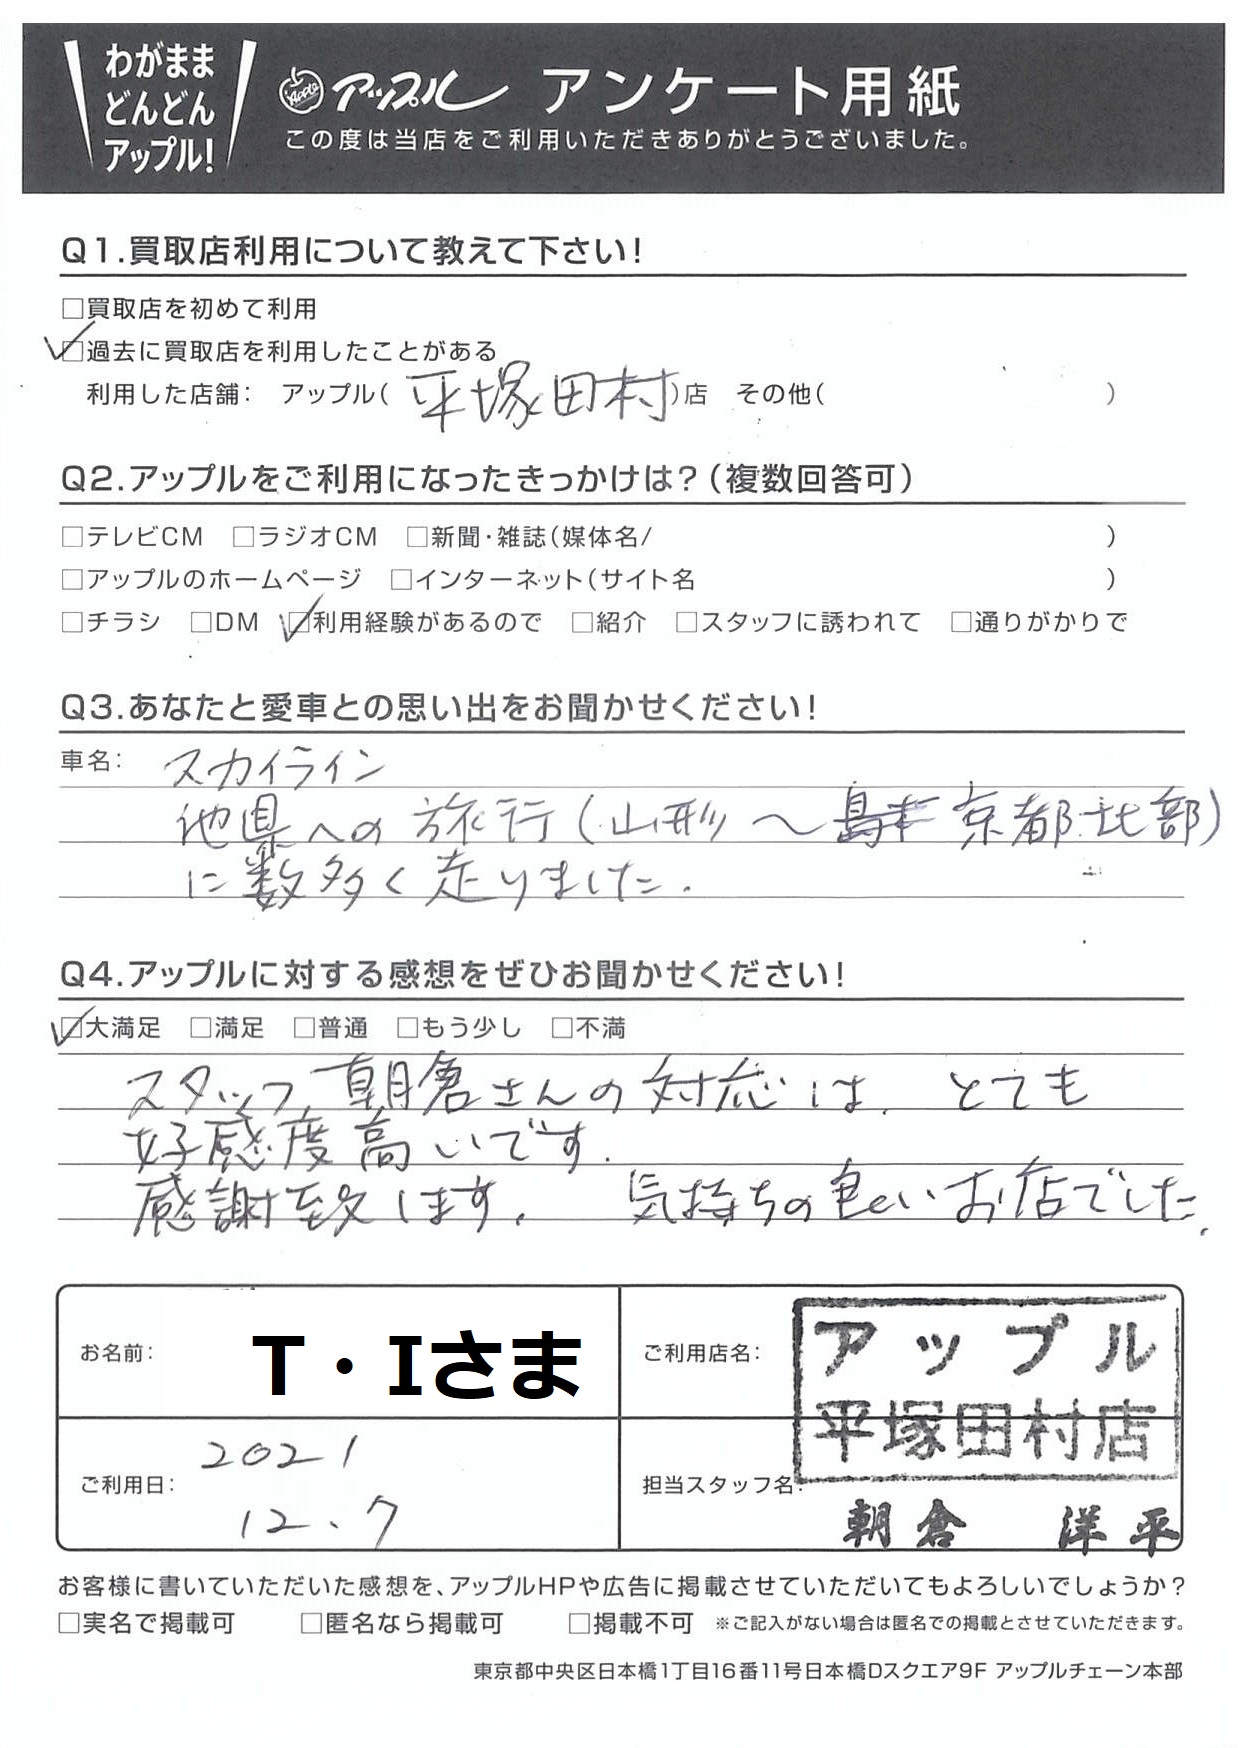 わがまま
どんどん
アップル!
Apple アップル アンケート用紙
この度は当店をご利用いただきありがとうございました。
Q1.買取店利用について教えて下さい!
□買取店を初めて利用
☑過去に買取店を利用したことがある
利用した店舗: アップル(平塚田村)店 その他( )
Q2.アップルをご利用になったきっかけは?(複数回答可)
□テレビCM □ラジオCM □新聞・雑誌(媒体名/ )
□アップルのホームページ □インターネット(サイト名 )
□チラシ □DM ☑利用経験があるので □紹介 □スタッフに誘われて □通りがかりで
Q3.あなたと愛車との思い出をお聞かせください!
車名: スカイライン
他県への旅行(山形〜京都北部)
に数多く走りました.
Q4.アップルに対する感想をぜひお聞かせください!
☑大満足 □満足 □普通 □もう少し □不満
スタッフ朝倉さんの対応は、とても
好感度高いです.
感謝致します. 気持ちの良いお店でした.
お名前: T・Iさま
ご利用店名: アップル
平塚田村店
ご利用日: 2021
12.7
担当スタッフ名: 朝倉 洋平
お客様に書いていただいた感想を、アップルHPや広告に掲載させていただいてもよろしいでしょうか?
□実名で掲載可 □匿名なら掲載可 □掲載不可 ※ご記入がない場合は匿名での掲載とさせていただきます。
東京都中央区日本橋1丁目16番11号日本橋Dスクエア9F アップルチェーン本部